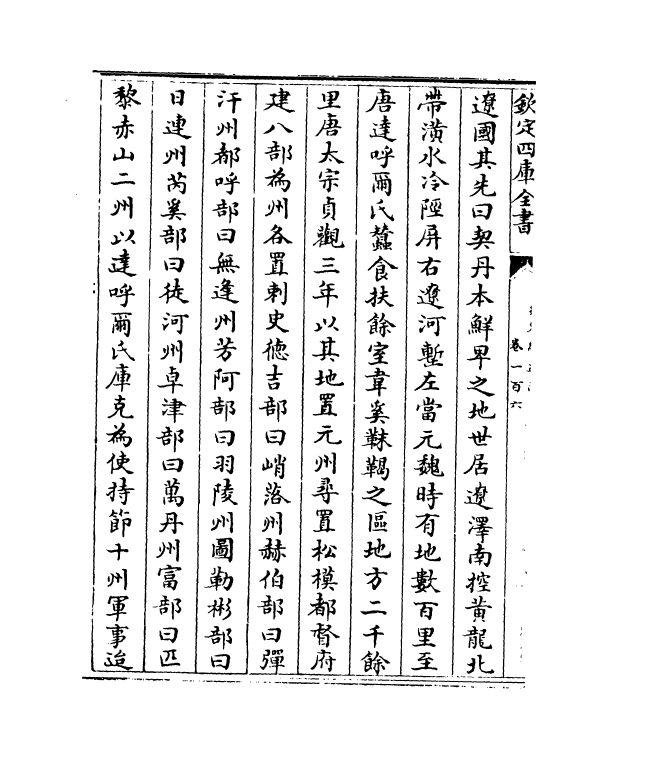 欽定四庫全書
卷一百六
遼國其先曰契丹本鮮卑之地世居遼澤南控黄龍北
帶潢水冷陘屏右遼河塹左當元魏時有地數百里至
唐達呼爾氏蠶食扶餘室韋奚靺鞨之區地方二千餘
里唐太宗貞觀三年以其地置元州尋置松模都督府
建八部為州各置刺史徳吉部曰峭落州赫伯部曰彈
汗州都呼部曰無逢州芳阿部曰羽陵州圖勒彬部曰
日連州芮奚部曰徒河州卓津部曰萬丹州富部曰匹
黎赤山二州以達呼爾氏庫克為使持節十州軍事迨